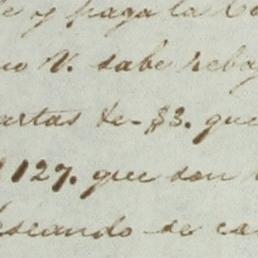 y paga la
V. sabe reba
artas de $3. que
127. que son
eseando se ca